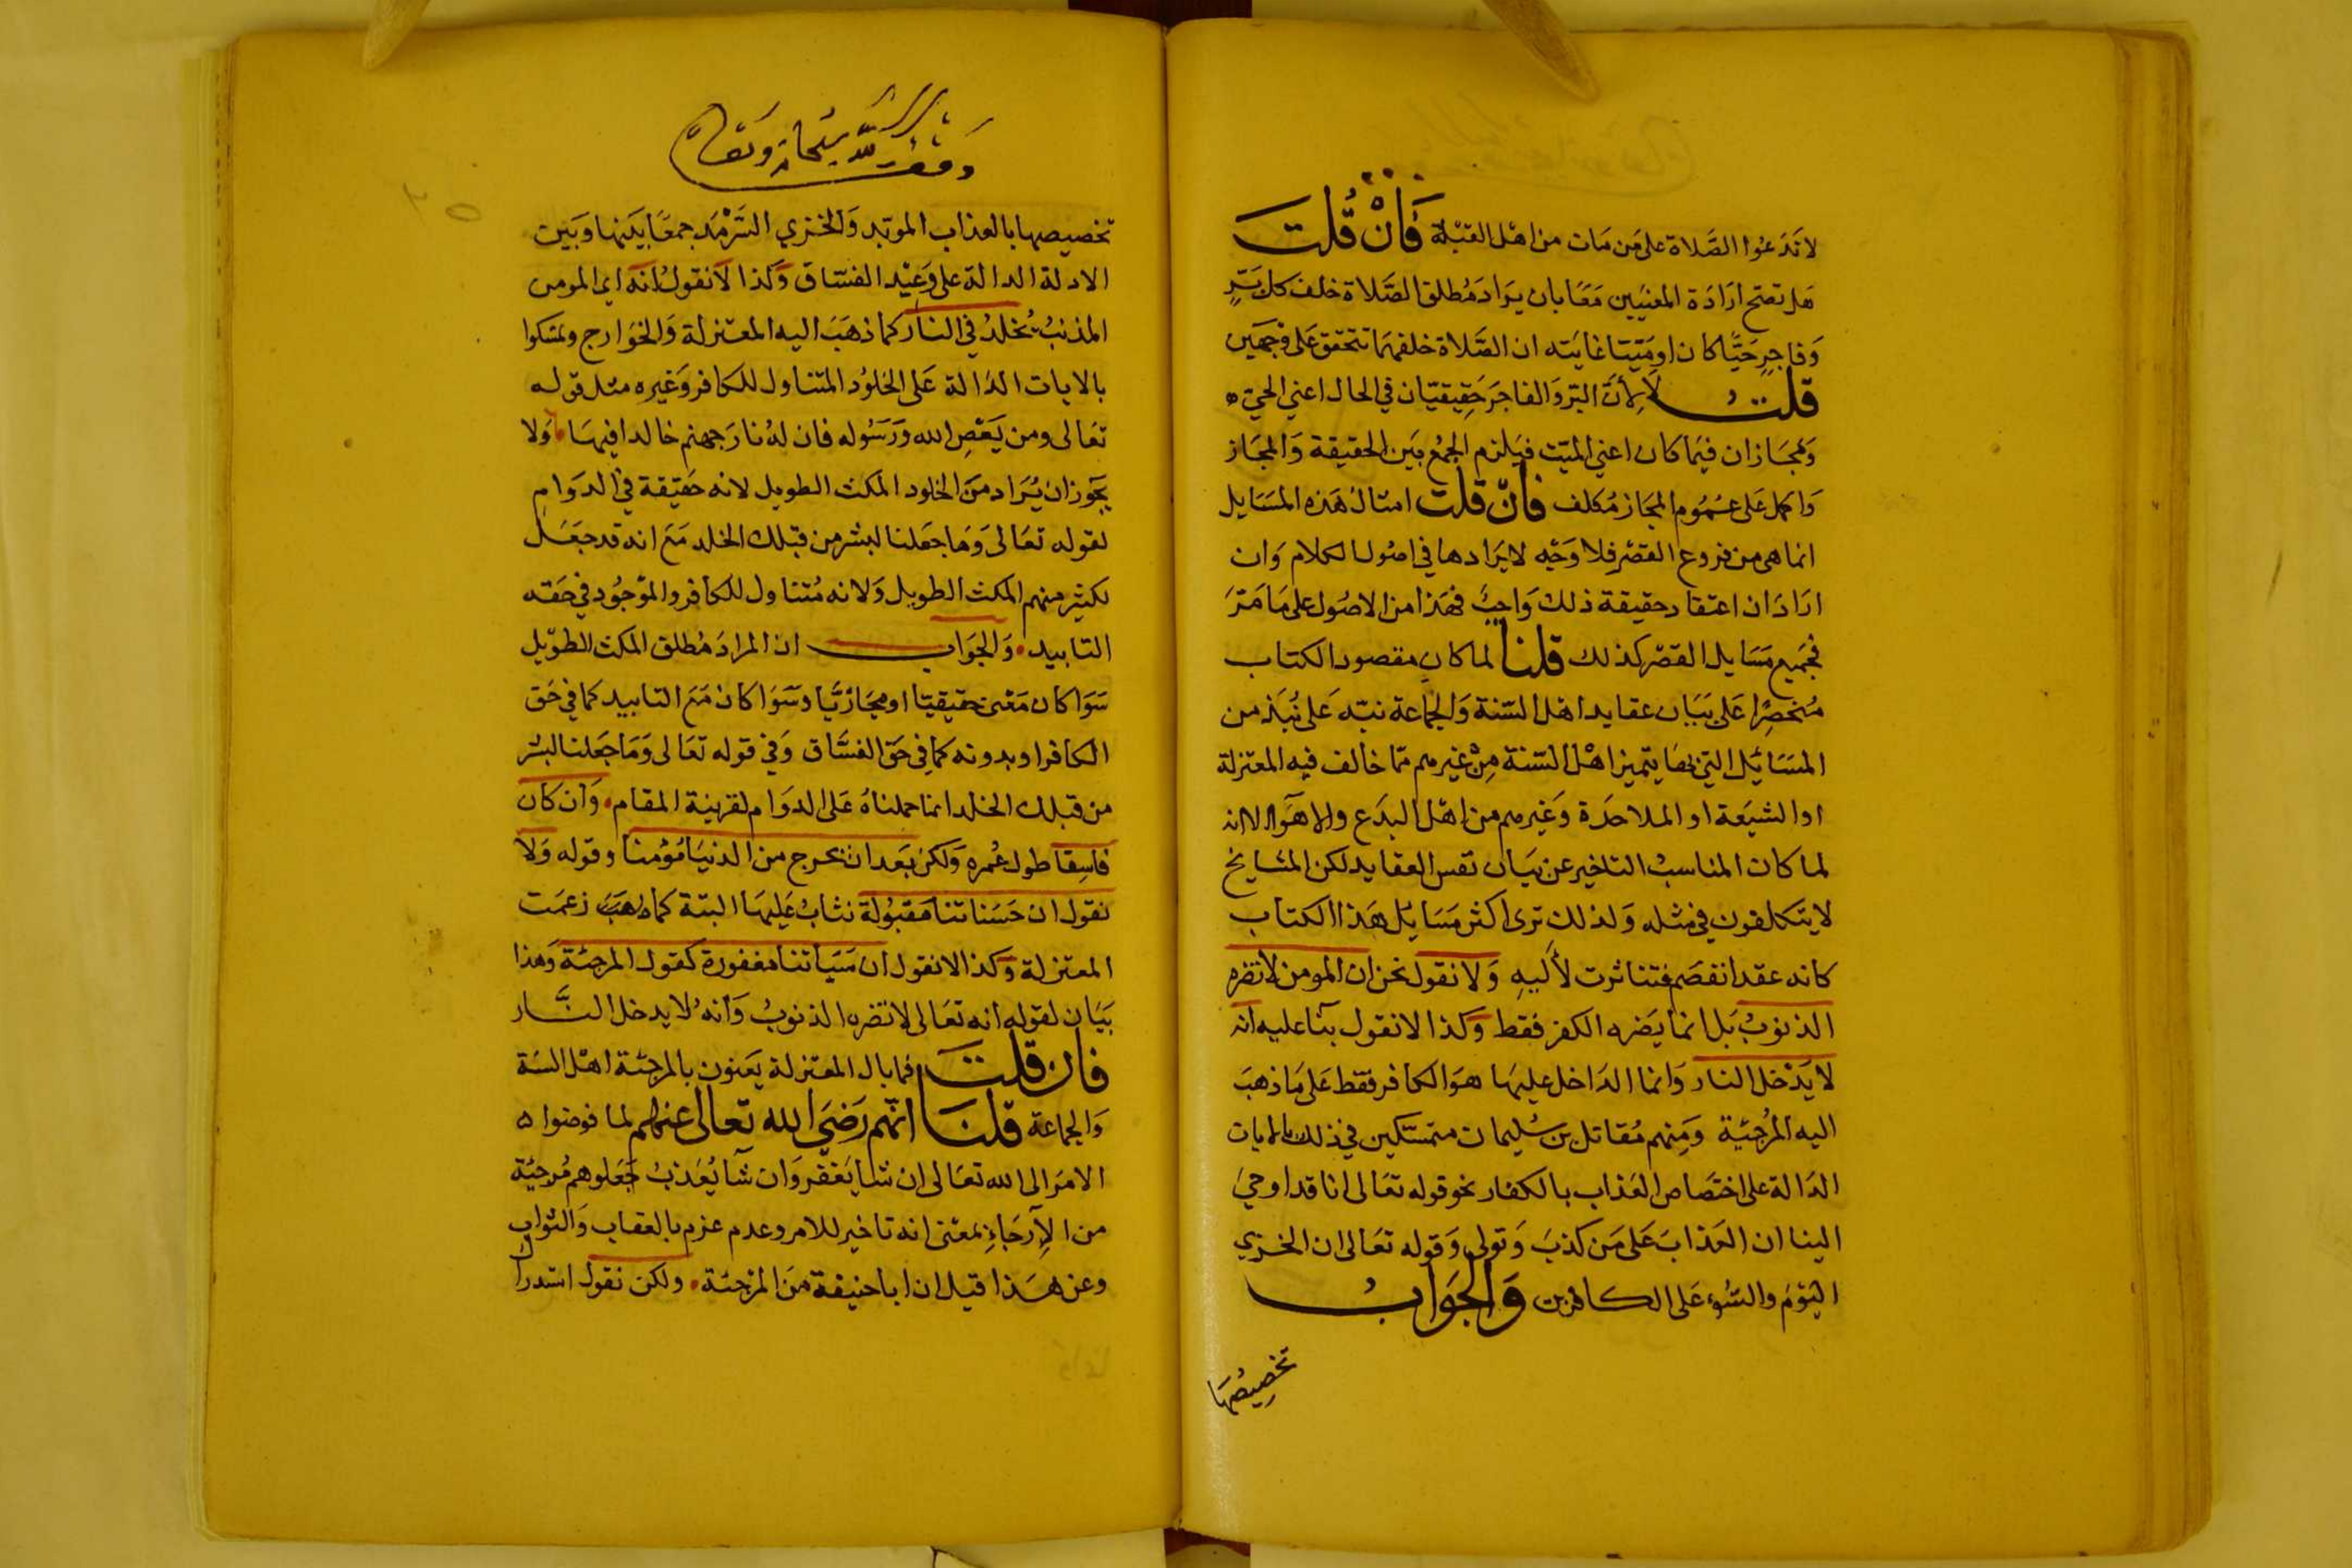 لا تدعوا الصَّلاة على مَن مَات من اهل القبْلة فَانْ قُلتَ
هَل تصح ارَادَة المعنيَين مَعًا بان يرَاد مُطلق الصَّلاة خلف كل بَرٍّ
وَفاجرٍ حَيًّا كان او مَيّتا غايَته ان الصَّلاة خلفهمَا تتحقق عَلى وَجهَين
قلتُ لا لأنَّ البرّ وَالفاجرَ حَقيقيّان في الحال اعني الحيّ
وَمجَازان فيمَا كان اعني الميّت فيَلزم الجمْعُ بَين الحقيقة وَالمجَاز
وَالحمل عَلى عُمُوم المجَاز مُكلف فانْ قلت امثال هَذه المسَايل
انما هى من فروع الفقه فلا وَجْه لايرَادها في اصُول الكلام وَان
ارَادَ ان اعتقاد حقيقة ذلك وَاجبٌ فهَذا من الاصُول على مَا مَرَّ
فجَميع مَسَايل الفقه كذلك قلنا لما كان مقصود الكتاب
مُنحصِرًا عَلى بَيَان عقايد اهل السّنة وَالجماعة نبّه عَلى نُبَذ من
المسَائيل التي بهَا يتميز اهْل السّنة مِنْ غيرهم ممّا خالف فيه المعتزلة
او الشيعَة او الملاحدَة وَغيرهم من اهْل البدَع والاهوَآء الا انه
لما كان المناسبُ التاخير عن بيَان نفس العقايد لكن المشايخ
لا يتكلفون في مثله وَلذلك ترى اكثر مَسَايل هَذا الكتاب
كانه عقد انفصَم فتناثرت لأليهِ وَلا نقول نحن ان المومن لا تضره
الذنوبُ بَل انما يَضره الكفر فقط وَكذا لا نقول بنآ عليه انه
لا يَدْخل النار وَانما الدَاخل عليهَا هوَ الكافر فقط عَلى مَا ذهبَ
اليه المُرجئة وَمِنهم مُقاتل بن سُليمان متمسّكين في ذلك بالايات
الدَالة على اختصَاص العَذاب بالكفار نحو قوله تعَالى انا قد اوحيَ
الينا ان العَذابَ عَلى مَن كذبَ وَتولى وَقوله تعَالى ان الخزي
اليَوْمَ والسّوء عَلى الكافرين وَالجوَابُ
تخصِيصُهَا
وقف لله سبحانه وتعالى
تخصيصها بالعذاب الموبد وَالخزي السَّرْمَد جمعًا بَينها وَبَين
الادلة الدالة على وَعِيْد الفسّاق وَكذا لا نقول انه اى المومن
المذنبُ يُخلدُ في النار كما ذهَبَ اليه المعتزلة وَالخوَارج وتمسّكوا
بالايات الدَالة عَلى الخلوُد المتناول للكافر وَغيره مثل قوله
تعَالى ومن يَعْصِ الله وَرَسُوله فان لهُ نارَ جهنم خالدا فيهَا وَلا
يجَوز ان يُرَاد مَن الخلود المكث الطويل لانه حَقيقة في الدوَام
لقوله تعَالى وَمَا جعَلنا لبشر من قبلك الخلد مَع انه قد جعَل
لكثير منهم المكث الطويل وَلانه مُتناول للكافر والموْجُود في حَقه
التابيد وَالجوَاب ان المرادَ مُطلق المكث الطوّيل
سَوَا كان مَعْنى حقيقيّا او مجَازيًّا وسَوَا كان مَع التابيد كما في حَق
الكافر او بدونه كما في حَق الفسَّاق وَفي قوله تعَالى وَمَا جَعلنا لبشر
من قبلك الخلد انما حملناهُ عَلى الدوَام لقرينة المقام وَان كان
فاسِقا طول عُمره وَلكن بَعد ان يخرج من الدنيَا مُؤمنا وقوله وَلا
نقول ان حَسَناتنا مَقبُولة نثابُ عَليهَا البتة كما ذهبَ زعمَت
المعتزلة وَكذا لا نقول ان سَيّاتنا مغفورة كقول المرجئة وَهَذا
بيَان لقوله انه تعَالى لا تضره الذنوبُ وَانهُ لا يدخل النَّار
فان قلتَ فما بال المعْتزلة يعَنون بالمرجئة اهْل السّنة
وَالجماعة قلنَا انّهم رَضيَ الله تعَالى عنهم لما فوضوا
الامرَ الى الله تعَالى ان شا يَغفر وَان شآ يُعَذبُ جَعَلوهم مُرجئة
من الإرجَاءِ بمعْنى انه تاخير للامر وعدم عزم بالعقاب وَالثواب
وعن هَذا قيل ان ابا حنيفة مَن المرْجئة ولكن نقول استدراك